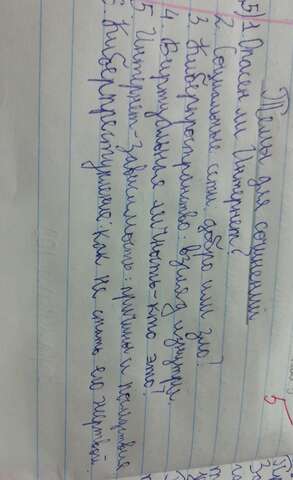 Темы для сочинений
1. Опасен ли Интернет?
2. Социальные сети: добро или зло?
3. Киберпространство: взгляд изнутри.
4. Виртуальная личность - кто это?
5. Интернет-зависимость: причины и последствия
6. Киберпреступление: как не стать его жертвой.
5